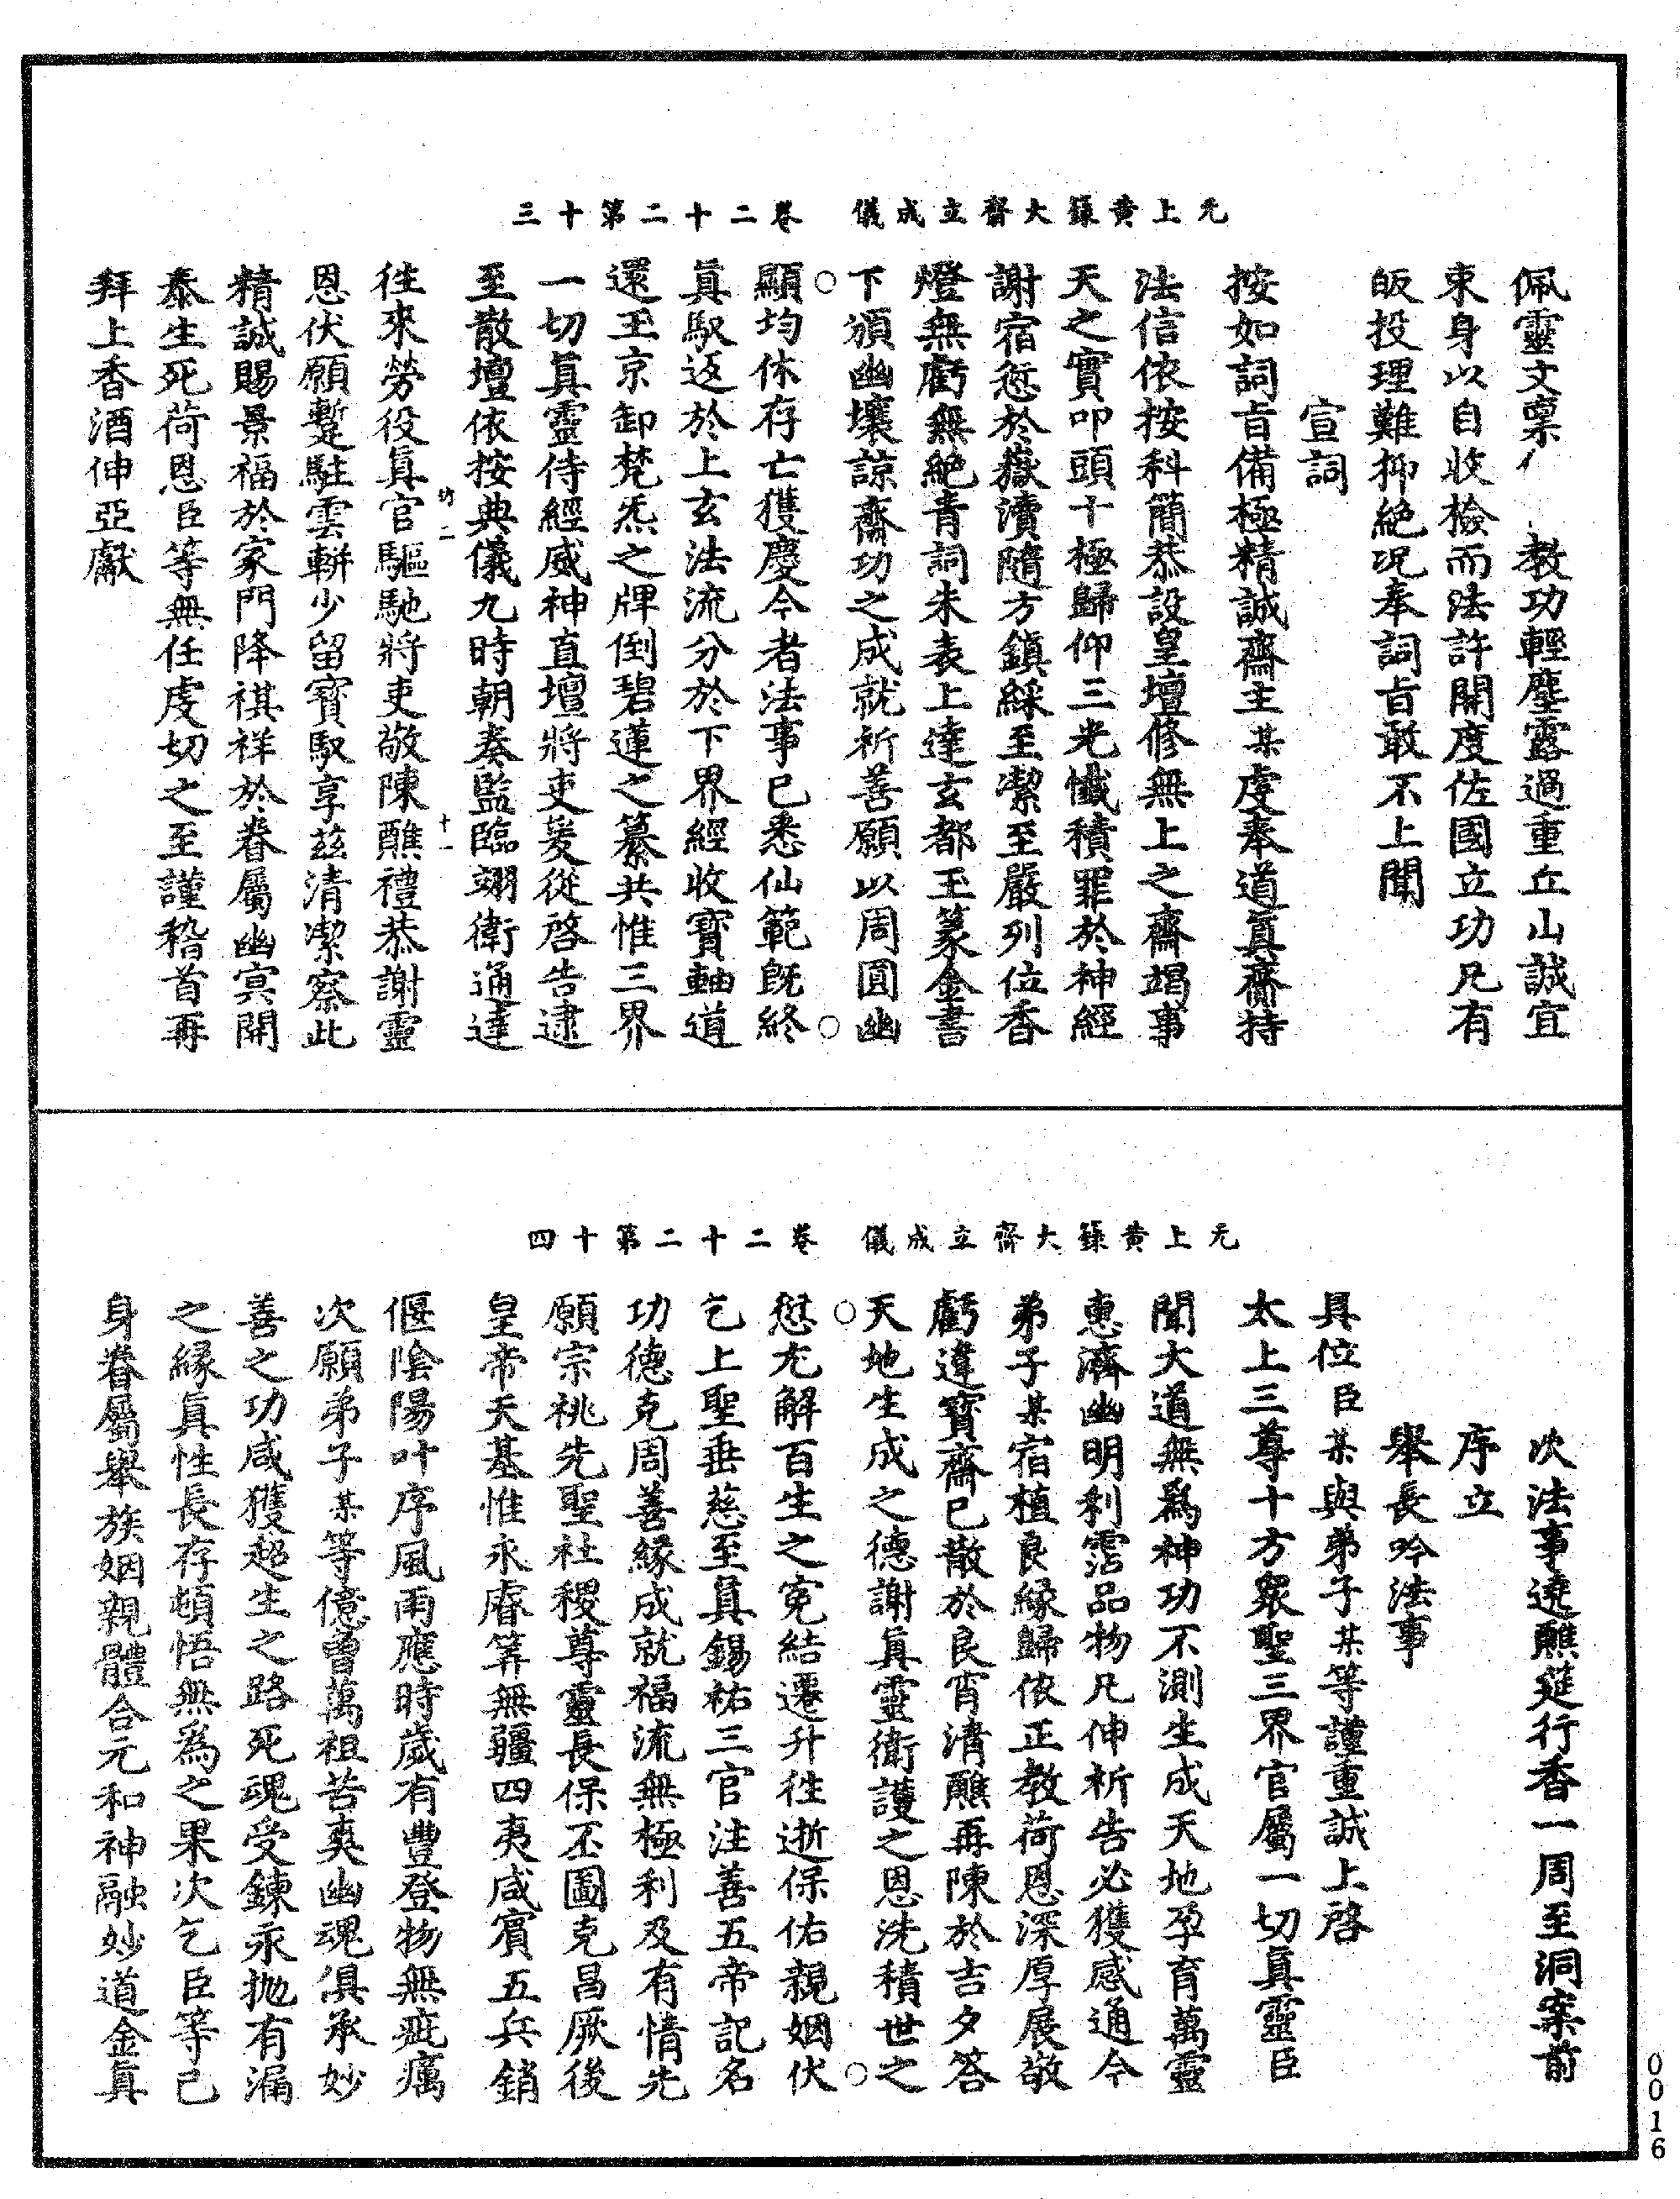 元上黃籙大齋立成儀　卷二十二第十三
佩靈文稟教功輕塵露過重丘山誠宜
束身以自收撿而法許開度佐國立功凡有
皈投理難抑絕況奉詞旨敢不上聞
宣詞
按如詞旨備極精誠齋主某虔奉道眞齋持
法信依按科簡恭設皇壇修無上之齋竭事
天之實叩頭十極歸仰三光懺積罪於神經
謝宿愆於嶽瀆隨方鎮綵至潔至嚴列位香
燈無虧無絕青詞朱表上達玄都玉篆金書
下頒幽壤諒齋功之成就祈善願以周圓幽
顯均休存亡獲慶今者法事已悉仙範旣終
眞馭返於上玄法流分於下界經收寶軸道
還玉京卸梵炁之牌倒碧蓮之纂共惟三界
一切眞靈侍經威神直壇將吏爰從啓告逮
至散壇依按典儀九時朝奏監臨翊衛通達
往來勞役眞官驅馳將吏敬陳醮禮恭謝靈
恩伏願蹔駐雲軿少留寶馭享茲清潔察此
精誠賜景福於家門降祺祥於眷屬幽冥開
泰生死荷恩臣等無任虔切之至謹稽首再
拜上香酒伸亞獻
元上黃籙大齋立成儀　卷二十二第十四
次法事遶醮筵行香一周至洞案前
序立
舉長吟法事
具位臣某與弟子某等謹重誠上啓
太上三尊十方眾聖三界官屬一切眞靈臣
聞大道無爲神功不測生成天地孕育萬靈
惠濟幽明利霑品物凡伸祈告必獲感通今
弟子某宿植良緣歸依正教荷恩深厚展敬
虧違寶齋已散於良宵清醮再陳於吉夕答
天地生成之德謝眞靈衛護之恩洗積世之
愆尤解百生之寃結遷升徃逝保佑親姻伏
乞上聖垂慈至眞錫祐三官注善五帝記名
功德克周善緣成就福流無極利及有情先
願宗祧先聖社稷尊靈長保丕圖克昌厥後
皇帝天基惟永睿筭無疆四夷咸賓五兵銷
偃陰陽叶序風雨應時歲有豐登物無疵癘
次願弟子某等億曾萬祖苦爽幽魂俱承妙
善之功咸獲超生之路死魂受鍊永拋有漏
之緣眞性長存頓悟無為之果次乞臣等己
身眷屬舉族姻親體合元和神融妙道金眞
0016